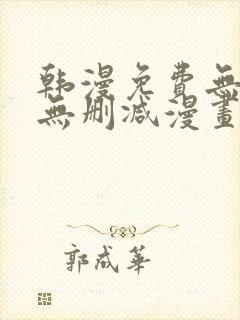 韩漫免費無
無删减漫畫
郭成華